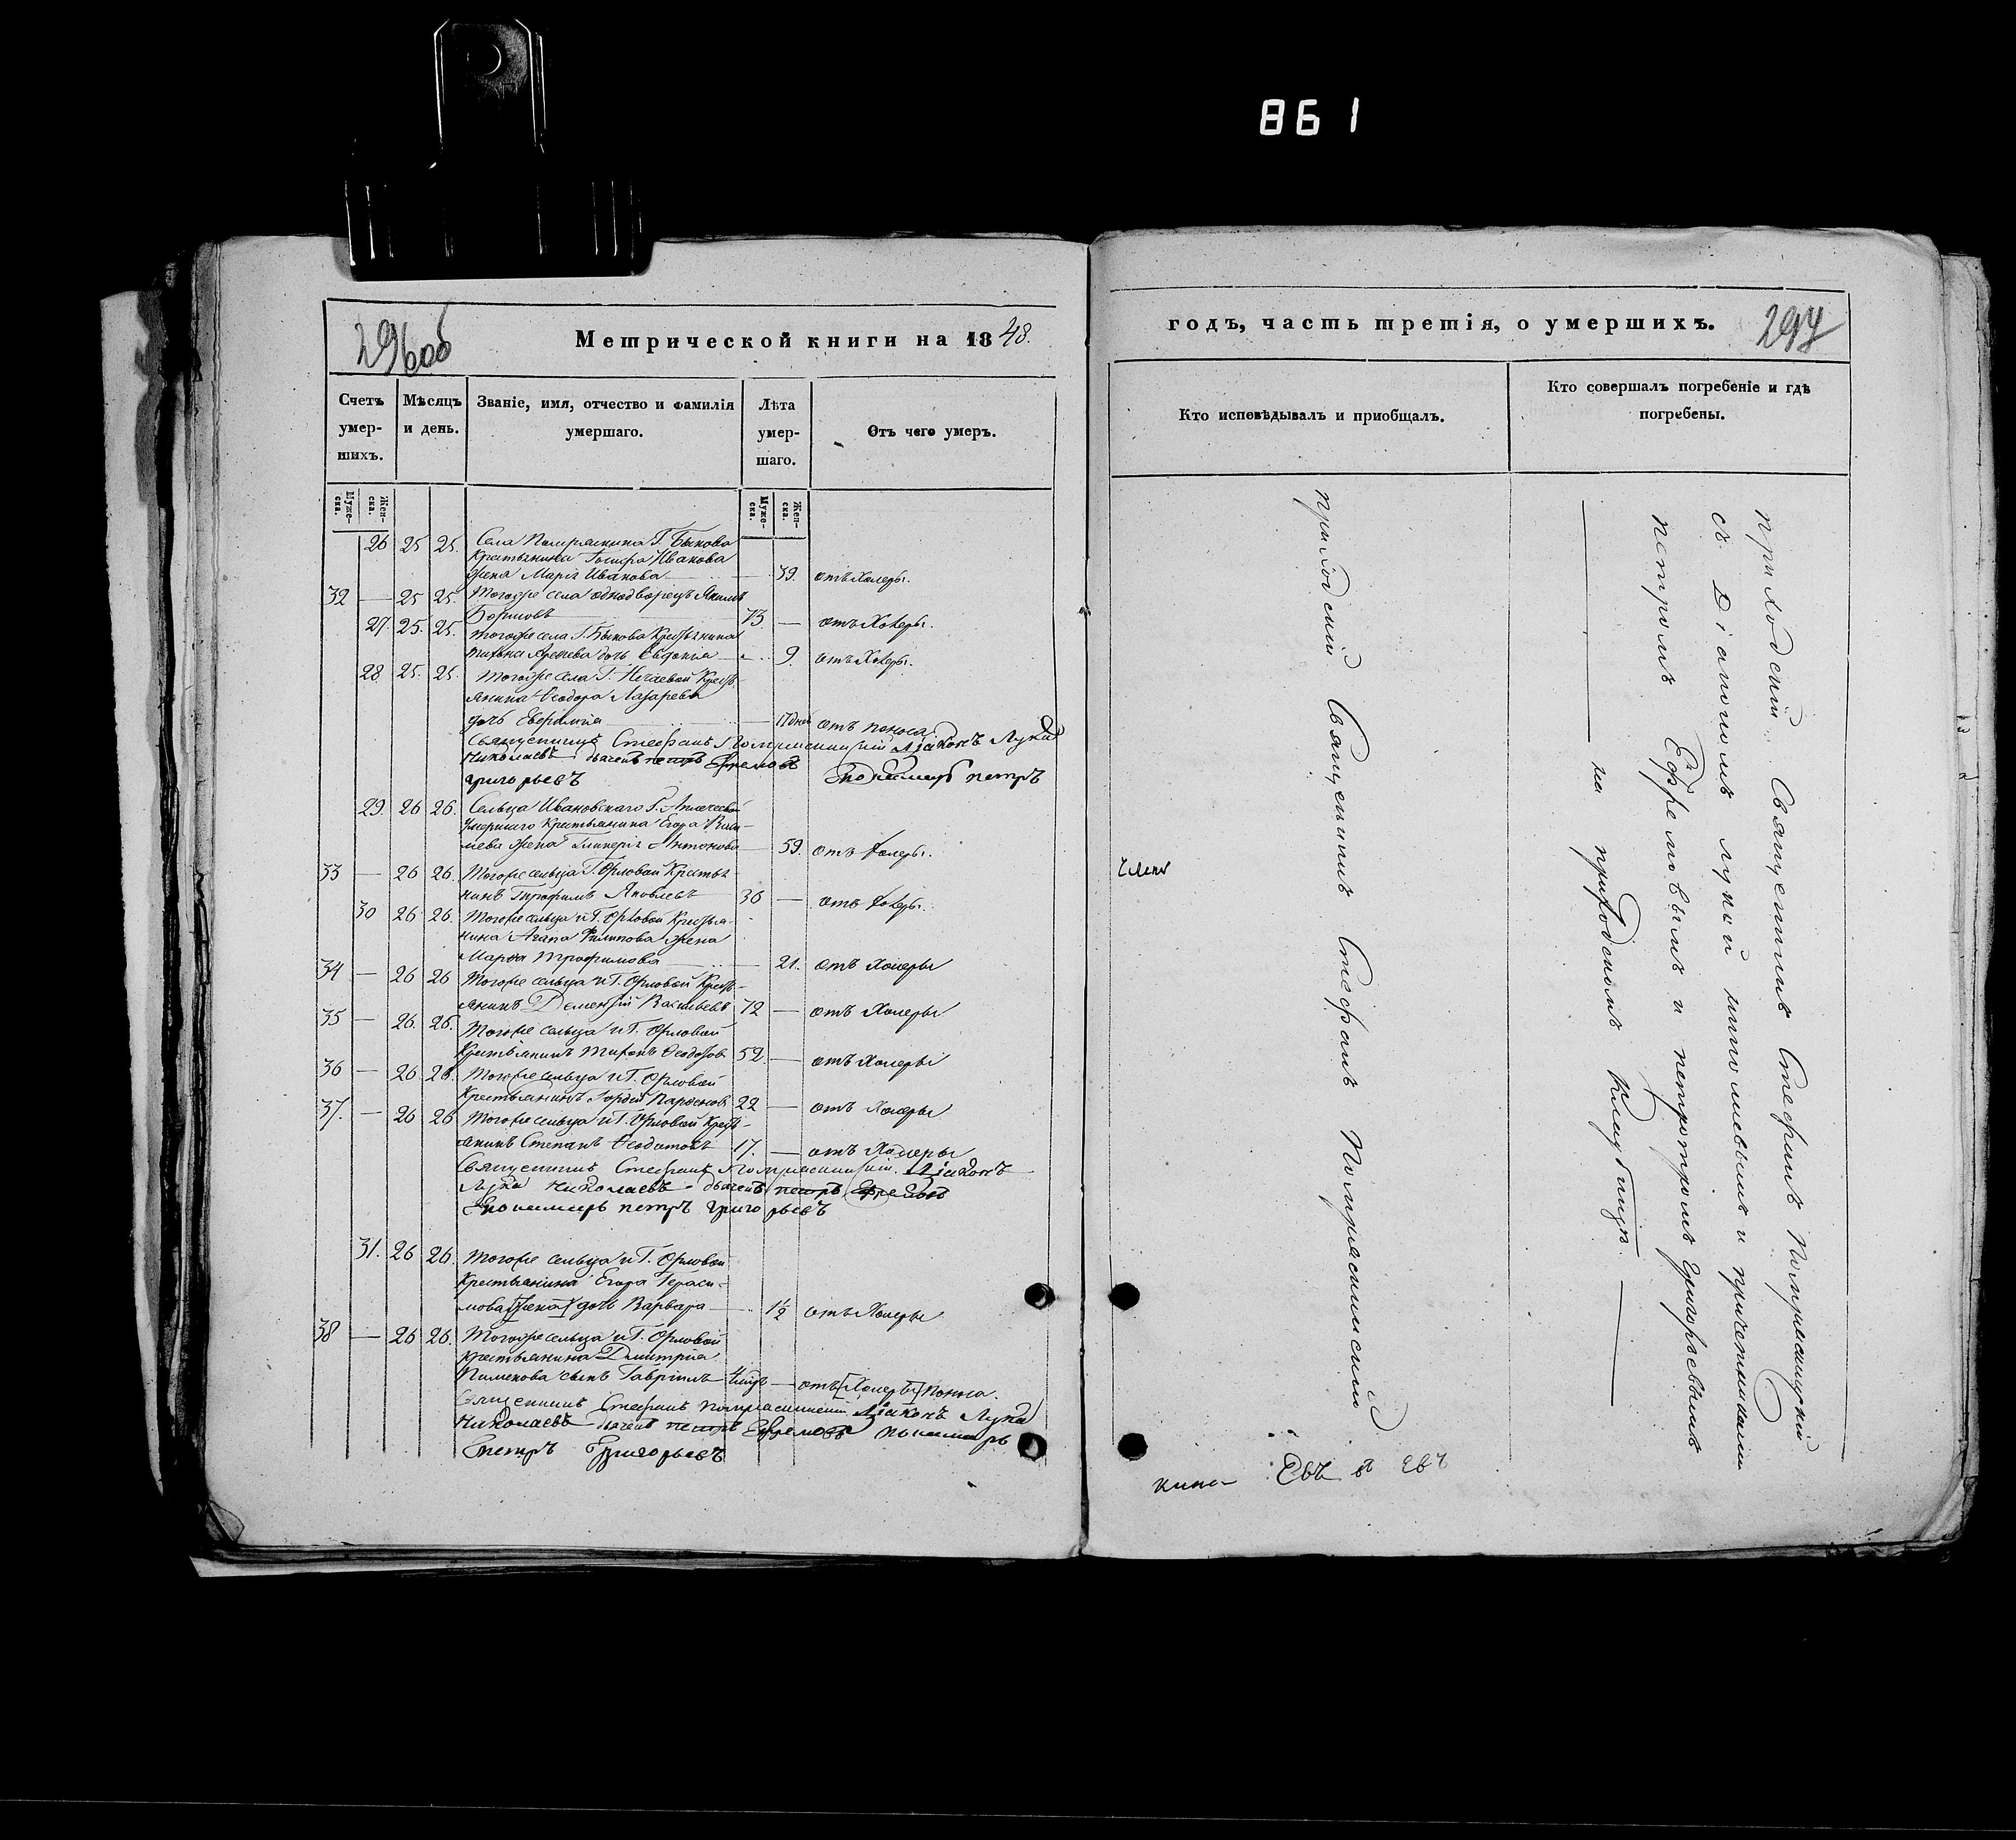 861
296 об
Метрической книги на 1848.
Счетъ умер-шихъ.
Мѣсяцъ и день.
Званіе, имя, отчество и фамилія умершаго.
Лѣта умер-шаго.
Отъ чего умеръ.
Муже-ска.
Жен-ска.
Муже-ска.
Жен-ска.
26 25 25. Села Г. Быкова
Крестьянина Иванова
жена Марія Иванова — 39. отъ Холеры.
32 — 25 25. Тогоже села однодворецъ
73 — отъ Холеры.
27. 25. 25. тогоже села Г. Быкова Крестьянина
дочь Евдокія 9. отъ Холеры.
28 25. 25. Тогоже села Г. Нечаевой Крестъ-
янина Ѳеодора Лазарева
дочь — 17 дней отъ поноса
Священникъ Стефанъ Діаконъ Лука
Николаевъ дьячекъ петръ Ефремовъ
григорьевъ Пономарь петръ
29. 26 26. Сельца Ивановскаго Г.
Умершаго Крестьянина Егора Васи-
льева жена Антонова — 59. отъ Холеры.
33 — 26 26 Тогоже сельца Г. Орловой Крестья-
нинъ Трофимъ Яковлевъ 36 — отъ Холеры.
30 26 26. Тогоже сельца и Г. Орловой Крестья-
нина Агапа Филипова жена
Марѳа Трофимова — 21. отъ Холеры
34 — 26 26 Тогоже сельца и Г. Орловой Крестъ-
янинъ Дементій Васильевъ 72 — отъ Холеры
35 — 26. 26. Тогоже сельца и Г. Орловой
Крестьянинъ Тихонъ 52 — отъ Холеры
36 — 26. 26. Тогоже сельца и Г. Орловой
Крестьянинъ Гордей Парѳеновъ 22 — отъ Холеры
37. — 26 26 Тогоже сельца и Г. Орловой Крестъ-
янинъ Степанъ 17. — отъ Холеры
Священникъ Стефанъ Діаконъ
Лука Николаевъ - дьячекъ петръ Ефремовъ
Пономарь петръ григорьевъ
31. 26 26. Тогоже сельца и Г. Орловой
Крестьянина Егора Гераси-
мова [жена] дочь Варвара — 1½ отъ Холеры
38 — 26 26. Тогоже сельца и Г. Орловой
крестьянина Димитрія
Пименова сынъ Гавріилъ — отъ [Холеры] поноса.
Священникъ Стефанъ Діаконъ Лука
Николаевъ дьячекъ петръ Ефремовъ пономарь
Петръ Григорьевъ
годъ, часть третія, о умершихъ.
297
Кто исповѣдывалъ и приобщалъ.
Кто совершалъ погребеніе и гдѣ погребены.
приходскій Священникъ Стефанъ
приходскій Священникъ Стефанъ
съ Діакономъ Лукой николаевымъ и причетниками
петромъ Ефремовымъ и петромъ григорьевымъ
на приходскомъ кладбищѣ.
Евъ